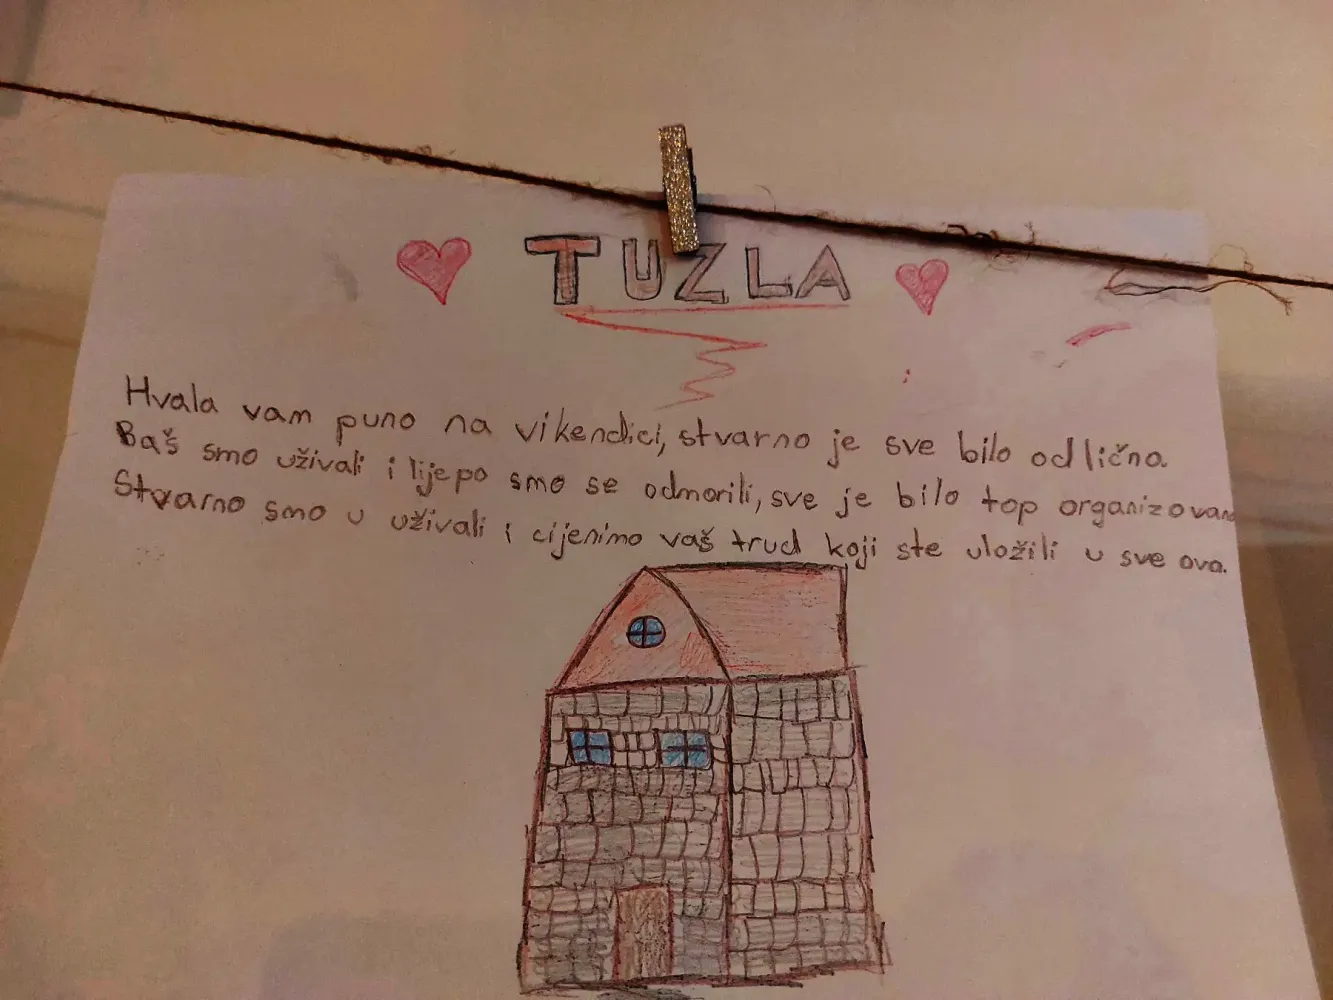 TUZLA
Hvala vam puno na vikendici, stvarno je sve bilo odlično.
Baš smo uživali i lijepo smo se odmorili, sve je bilo top organizovano
Stvarno smo u uživali i cijenimo vaš trud koji ste uložili u sve ovo.